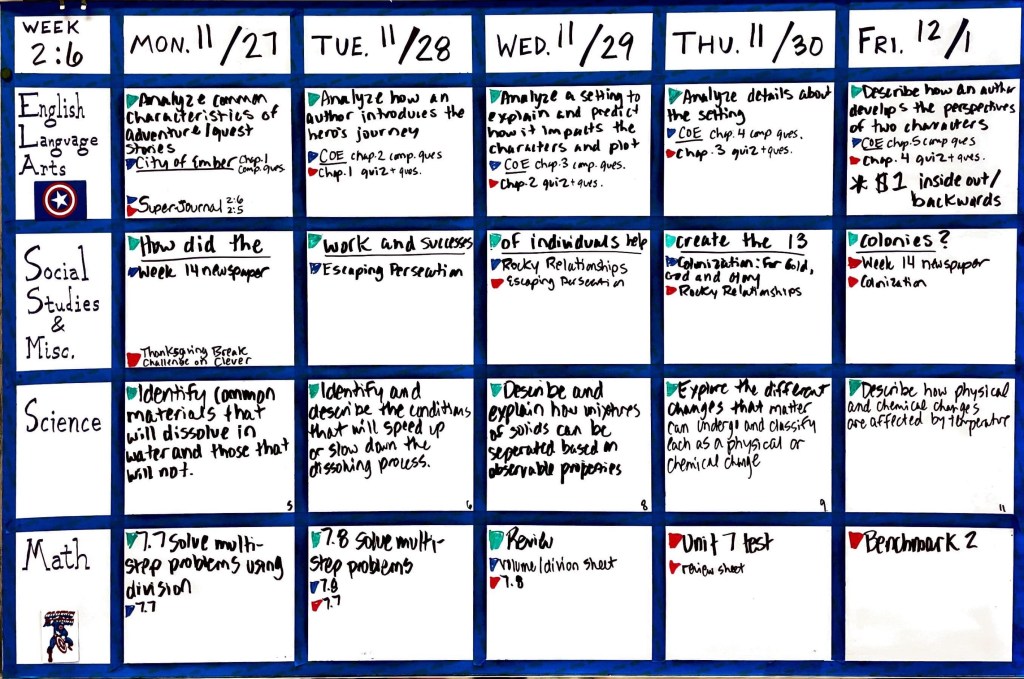 WEEK
2:6
MON. 11/27
TUE. 11/28
WED. 11/29
THU. 11/30
FRI. 12/1
English
Language
Arts
Analyze common
characteristics of
adventure/quest
stories
City of Ember Chap. 1
comp. ques.
Super-Journal 2:6
2:5
Analyze how an
author introduces the
hero's journey
COE chap. 2 comp. ques
Chap. 1 quiz + ques.
Analyze a setting to
explain and predict
how it impacts the
characters and plot
COE chap. 3 comp. ques.
Chap. 2 quiz + ques.
Analyze details about
the setting
COE chap. 4 comp ques.
Chap. 3 quiz + ques.
Describe how an author
develops the perspectives
of two characters
COE chap. 5 comp ques
Chap. 4 quiz + ques.
* $1 inside out/
backwards
Social
Studies
&
Misc.
How did the
Week 14 newspaper
Thanksgiving Break
Challenge on Clever
work and successes
Escaping Persecution
of individuals help
Rocky Relationships
Escaping Persecution
create the 13
Colonization: For Gold,
God and Glory
Rocky Relationships
colonies?
Week 14 newspaper
Colonization
Science
Identify common
materials that
will dissolve in
water and those that
will not.
5
Identify and
describe the conditions
that will speed up
or slow down the
dissolving process.
6
Describe and
explain how mixtures
of solids can be
seperated based on
observable properties
8
Explore the different
changes that matter
can undergo and classify
each as a physical or
chemical change
9
Describe how physical
and chemical changes
are affected by temperature
11
Math
7.7 Solve multi-
step problems using
division
7.7
7.8 Solve multi-
step problems
7.8
7.7
Review
volume/divion sheet
7.8
Unit 7 test
review sheet
Benchmark 2